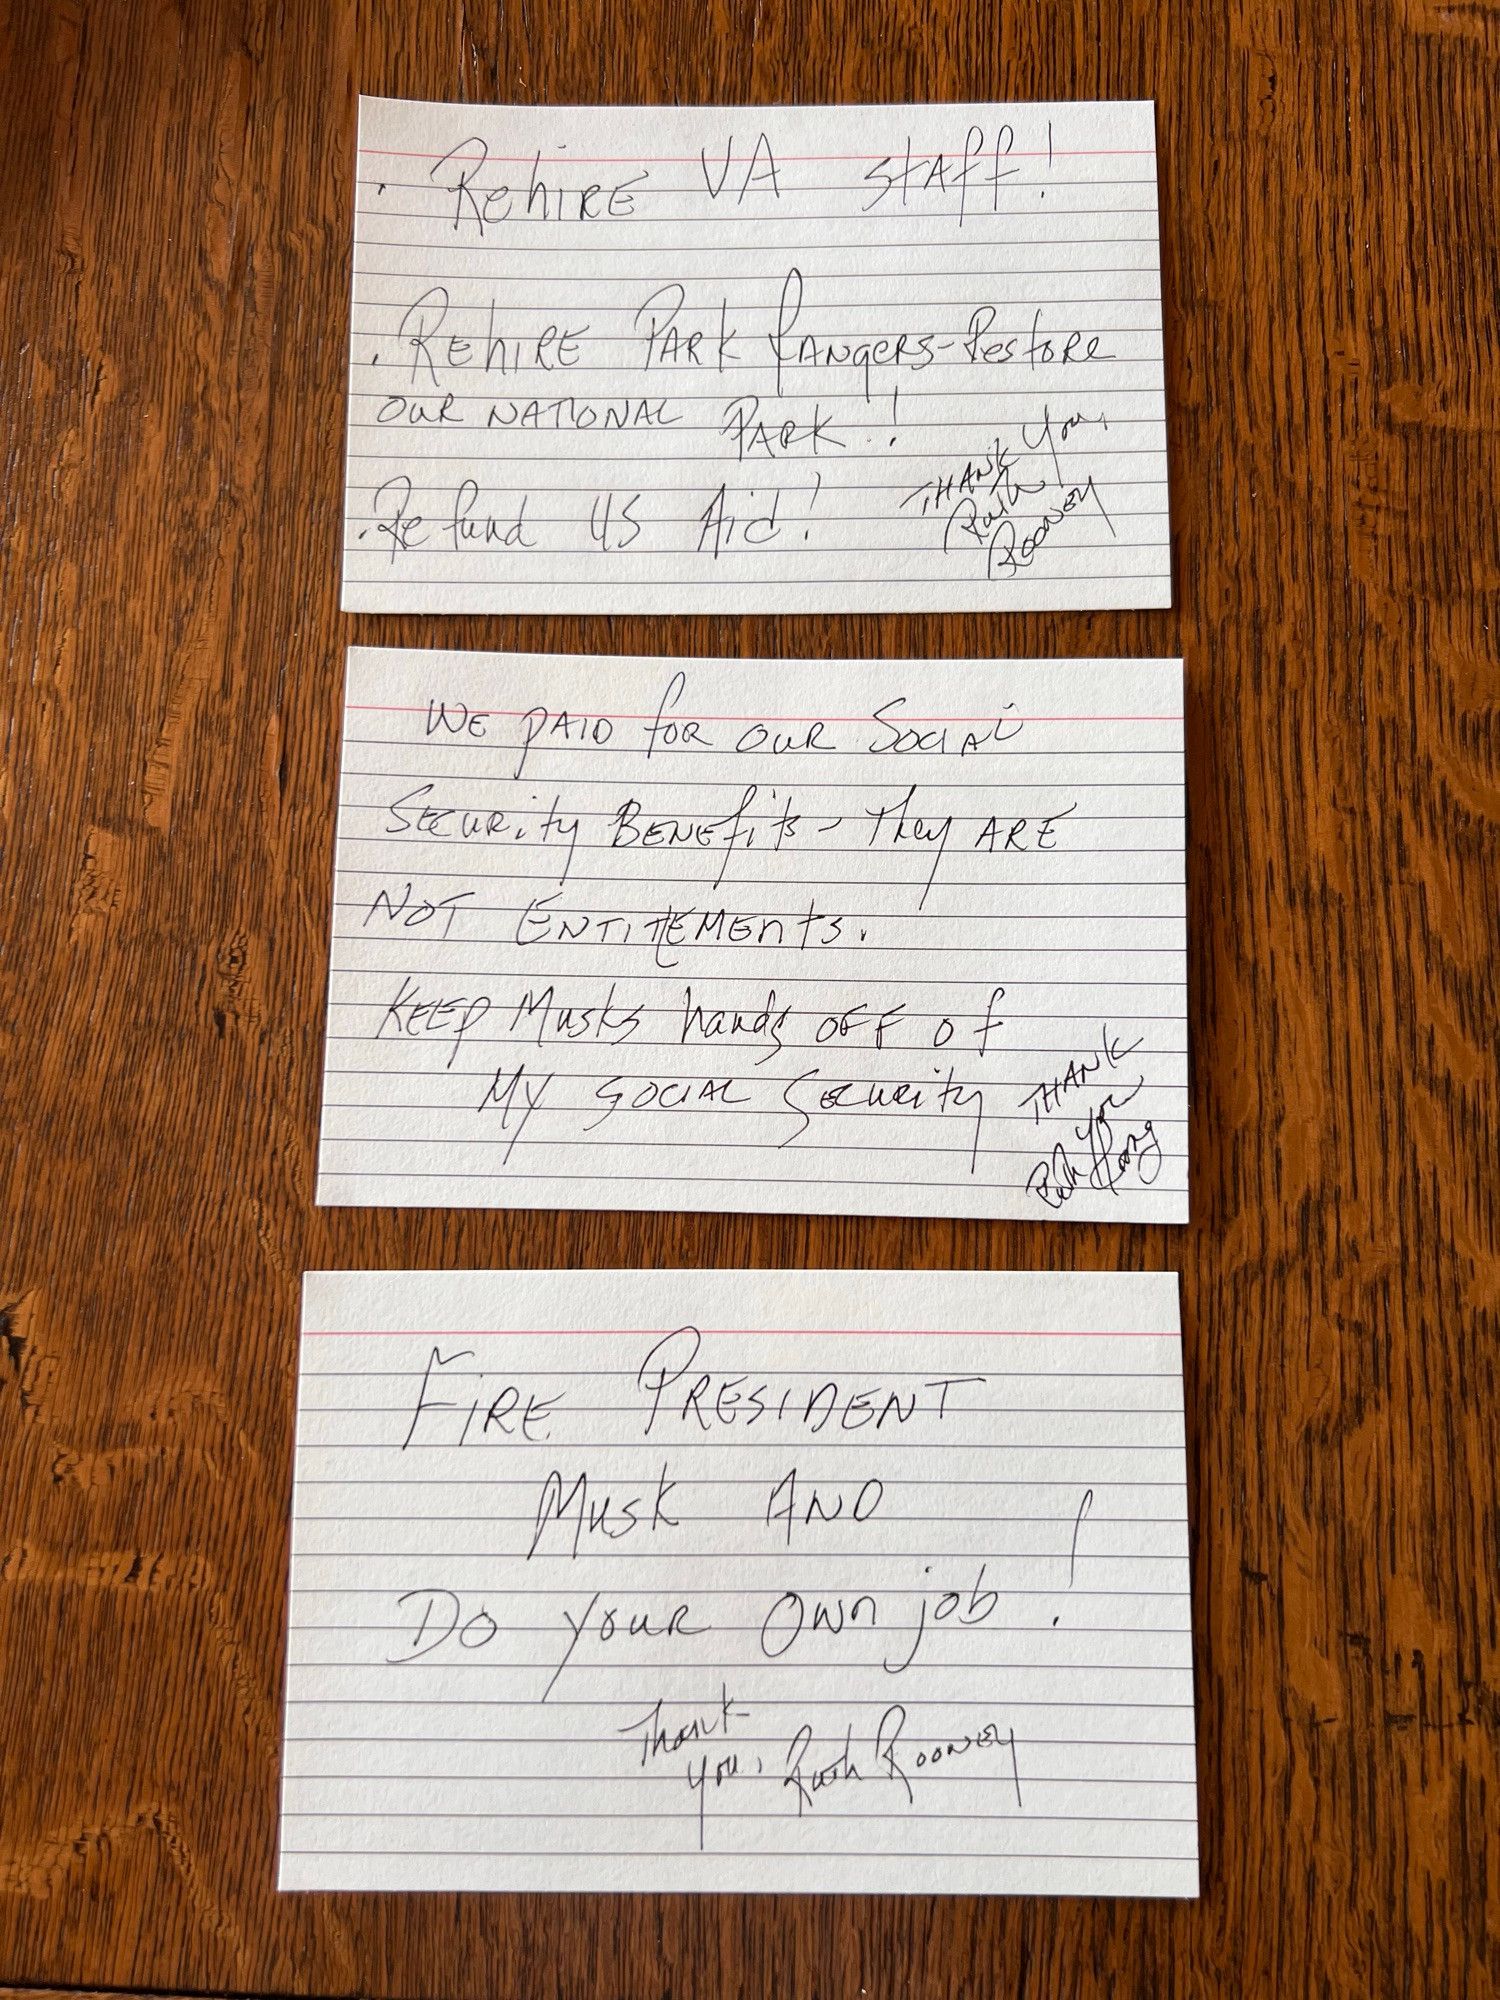 . Rehire VA Staff!
. Rehire Park Rangers-Restore
our National Park!
. Refund US Aid!
Thank You,
Ruth
Rooney
We paid for our Social
Security Benefits - They are
not Entitlements.
Keep Musks hands off of
My Social Security
Thank
You
Ruth Rooney
Fire President
Musk and
Do your own job!
Thank
you, Ruth Rooney